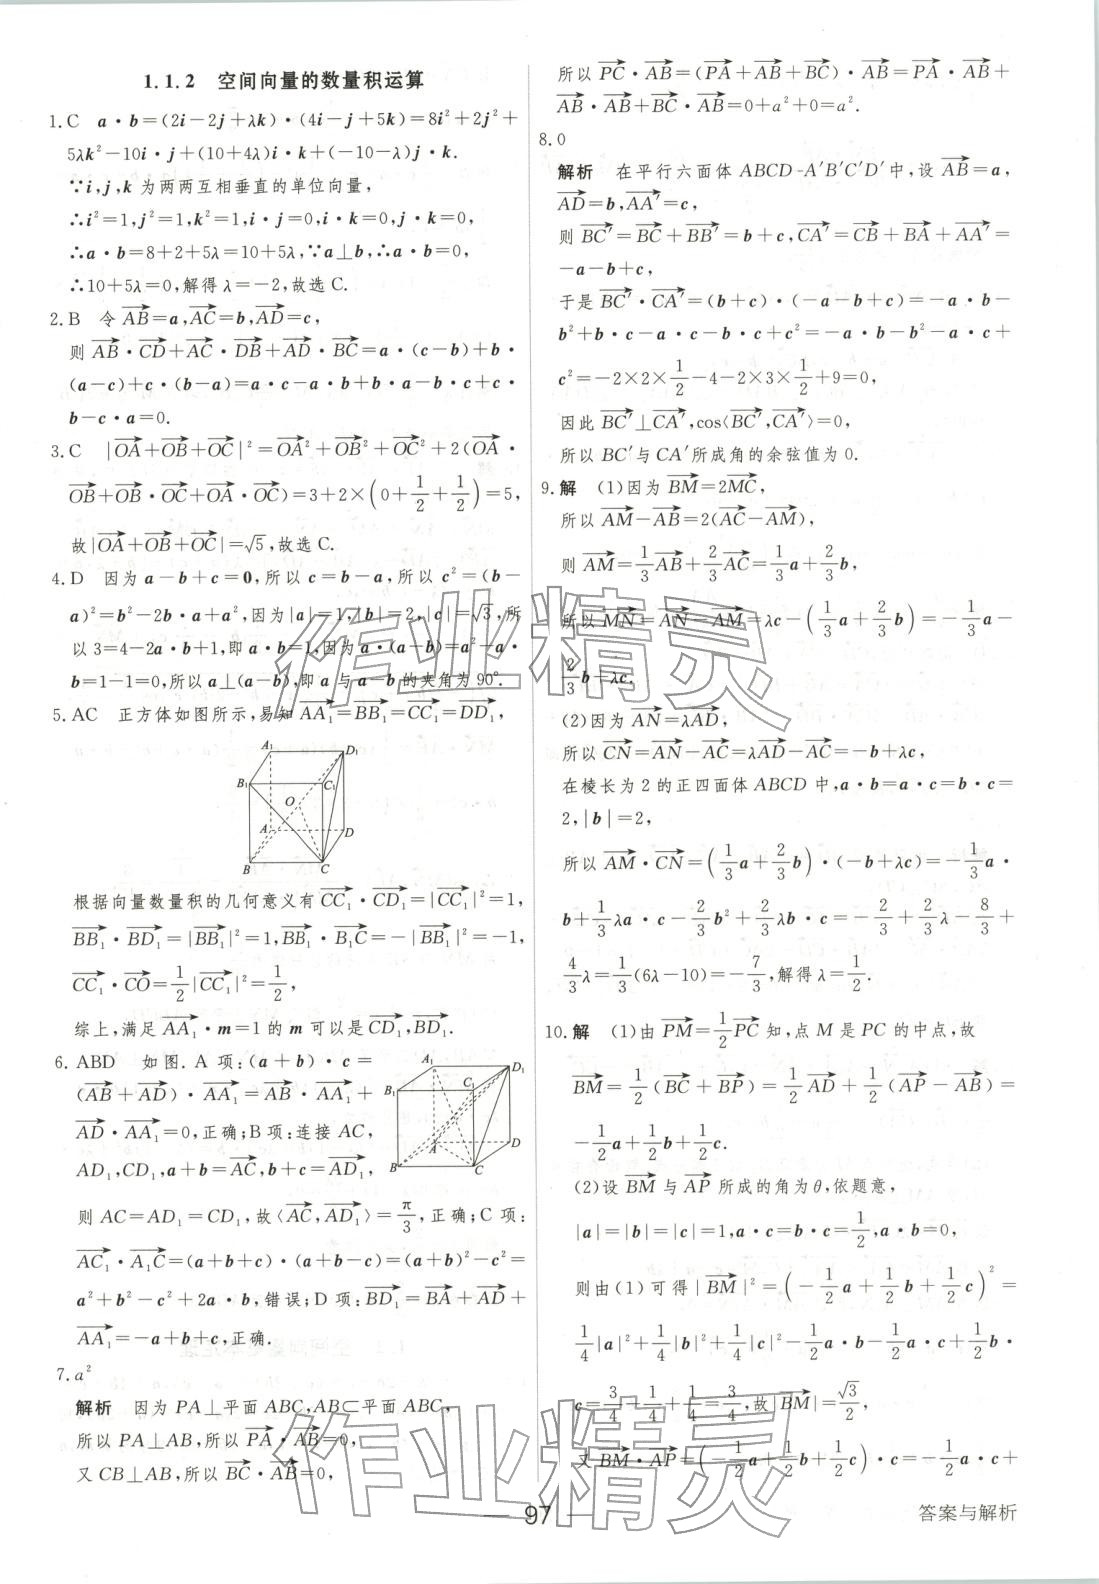 1.1.2 空间向量的数量积运算
1.C a·b=(2i-2j+λk)·(4i-j+5k)=8i²+2j²+
5λk²-10i·j+(10+4λ)i·k+(-10-λ)j·k.
∵i,j,k 为两两互相垂直的单位向量,
∴i²=1,j²=1,k²=1,i·j=0,i·k=0,j·k=0,
∴a·b=8+2+5λ=10+5λ,∵a⊥b,∴a·b=0,
∴10+5λ=0,解得 λ=-2,故选 C.
2.B 令 \overrightarrow{AB}=a,\overrightarrow{AC}=b,\overrightarrow{AD}=c,
则 \overrightarrow{AB}·\overrightarrow{CD}+\overrightarrow{AC}·\overrightarrow{DB}+\overrightarrow{AD}·\overrightarrow{BC}=a·(c-b)+b·
(a-c)+c·(b-a)=a·c-a·b+b·a-b·c+c·
b-c·a=0.
3.C |\overrightarrow{OA}+\overrightarrow{OB}+\overrightarrow{OC}|²=\overrightarrow{OA}²+\overrightarrow{OB}²+\overrightarrow{OC}²+2(\overrightarrow{OA}·
\overrightarrow{OB}+\overrightarrow{OB}·\overrightarrow{OC}+\overrightarrow{OA}·\overrightarrow{OC})=3+2×(0+1/2+1/2)=5,
故|\overrightarrow{OA}+\overrightarrow{OB}+\overrightarrow{OC}|=√5,故选 C.
4.D 因为 a-b+c=0,所以 c=b-a,所以 c²=(b-
a)²=b²-2b·a+a²,因为|a|=1,|b|=2,|c|=√3,所
以 3=4-2a·b+1,即 a·b=1,因为 a·(a-b)=a²-a·
b=1-1=0,所以 a⊥(a-b),即 a 与 a-b 的夹角为 90°.
5.AC 正方体如图所示,易知 \overrightarrow{AA₁}=\overrightarrow{BB₁}=\overrightarrow{CC₁}=\overrightarrow{DD₁},
A₁ D₁
B₁ C₁
O
A D
B C
根据向量数量积的几何意义有 \overrightarrow{CC₁}·\overrightarrow{CD₁}=|\overrightarrow{CC₁}|²=1,
\overrightarrow{BB₁}·\overrightarrow{BD₁}=|\overrightarrow{BB₁}|²=1,\overrightarrow{BB₁}·\overrightarrow{B₁C}=-|\overrightarrow{BB₁}|²=-1,
\overrightarrow{CC₁}·\overrightarrow{CO}=1/2|\overrightarrow{CC₁}|²=1/2,
综上,满足 \overrightarrow{AA₁}·m=1 的 m 可以是 \overrightarrow{CD₁},\overrightarrow{BD₁}.
6.ABD 如图.A 项:(a+b)·c=
(\overrightarrow{AB}+\overrightarrow{AD})·\overrightarrow{AA₁}=\overrightarrow{AB}·\overrightarrow{AA₁}+
\overrightarrow{AD}·\overrightarrow{AA₁}=0,正确;B 项:连接 AC,
AD₁,CD₁,a+b=\overrightarrow{AC},b+c=\overrightarrow{AD₁},
A₁ D₁
B₁ C₁
A D
B C
则 AC=AD₁=CD₁,故〈\overrightarrow{AC},\overrightarrow{AD₁}〉=π/3,正确;C 项:
\overrightarrow{AC₁}·\overrightarrow{A₁C}=(a+b+c)·(a+b-c)=(a+b)²-c²=
a²+b²-c²+2a·b,错误;D 项:\overrightarrow{BD₁}=\overrightarrow{BA}+\overrightarrow{AD}+
\overrightarrow{AA₁}=-a+b+c,正确.
7.a²
解析 因为 PA⊥平面 ABC,AB⊂平面 ABC,
所以 PA⊥AB,所以 \overrightarrow{PA}·\overrightarrow{AB}=0,
又 CB⊥AB,所以 \overrightarrow{BC}·\overrightarrow{AB}=0,
所以 \overrightarrow{PC}·\overrightarrow{AB}=(\overrightarrow{PA}+\overrightarrow{AB}+\overrightarrow{BC})·\overrightarrow{AB}=\overrightarrow{PA}·\overrightarrow{AB}+
\overrightarrow{AB}·\overrightarrow{AB}+\overrightarrow{BC}·\overrightarrow{AB}=0+a²+0=a².
8.0
解析 在平行六面体 ABCD-A′B′C′D′中,设 \overrightarrow{AB}=a,
\overrightarrow{AD}=b,\overrightarrow{AA′}=c,
则 \overrightarrow{BC′}=\overrightarrow{BC}+\overrightarrow{BB′}=b+c,\overrightarrow{CA′}=\overrightarrow{CB}+\overrightarrow{BA}+\overrightarrow{AA′}=
-a-b+c,
于是 \overrightarrow{BC′}·\overrightarrow{CA′}=(b+c)·(-a-b+c)=-a·b-
b²+b·c-a·c-b·c+c²=-a·b-b²-a·c+
c²=-2×2×1/2-4-2×3×1/2+9=0,
因此 \overrightarrow{BC′}⊥\overrightarrow{CA′},cos〈\overrightarrow{BC′},\overrightarrow{CA′}〉=0,
所以 BC′与 CA′所成角的余弦值为 0.
9.解 (1)因为 \overrightarrow{BM}=2\overrightarrow{MC},
所以 \overrightarrow{AM}-\overrightarrow{AB}=2(\overrightarrow{AC}-\overrightarrow{AM}),
则 \overrightarrow{AM}=1/3\overrightarrow{AB}+2/3\overrightarrow{AC}=1/3a+2/3b,
所以 \overrightarrow{MN}=\overrightarrow{AN}-\overrightarrow{AM}=λc-(1/3a+2/3b)=-1/3a-
2/3b+λc.
(2)因为 \overrightarrow{AN}=λ\overrightarrow{AD},
所以 \overrightarrow{CN}=\overrightarrow{AN}-\overrightarrow{AC}=λ\overrightarrow{AD}-\overrightarrow{AC}=-b+λc,
在棱长为 2 的正四面体 ABCD 中,a·b=a·c=b·c=
2,|b|=2,
所以 \overrightarrow{AM}·\overrightarrow{CN}=(1/3a+2/3b)·(-b+λc)=-1/3a·
b+1/3λa·c-2/3b²+2/3λb·c=-2/3+2/3λ-8/3+
4/3λ=1/3(6λ-10)=-7/3,解得 λ=1/2.
10.解 (1)由 \overrightarrow{PM}=1/2\overrightarrow{PC} 知,点 M 是 PC 的中点,故
\overrightarrow{BM}=1/2(\overrightarrow{BC}+\overrightarrow{BP})=1/2\overrightarrow{AD}+1/2(\overrightarrow{AP}-\overrightarrow{AB})=
-1/2a+1/2b+1/2c.
(2)设 \overrightarrow{BM} 与 \overrightarrow{AP} 所成的角为 θ,依题意,
|a|=|b|=|c|=1,a·c=b·c=1/2,a·b=0,
则由(1)可得|\overrightarrow{BM}|²=(-1/2a+1/2b+1/2c)²=
1/4|a|²+1/4|b|²+1/4|c|²-1/2a·b-1/2a·c+1/2b·
c=3/4+1/4+1/4=3/4,故|\overrightarrow{BM}|=√3/2,
又 \overrightarrow{BM}·\overrightarrow{AP}=(-1/2a+1/2b+1/2c)·c=-1/2a·c+
97
答案与解析
作业精灵
作业精灵